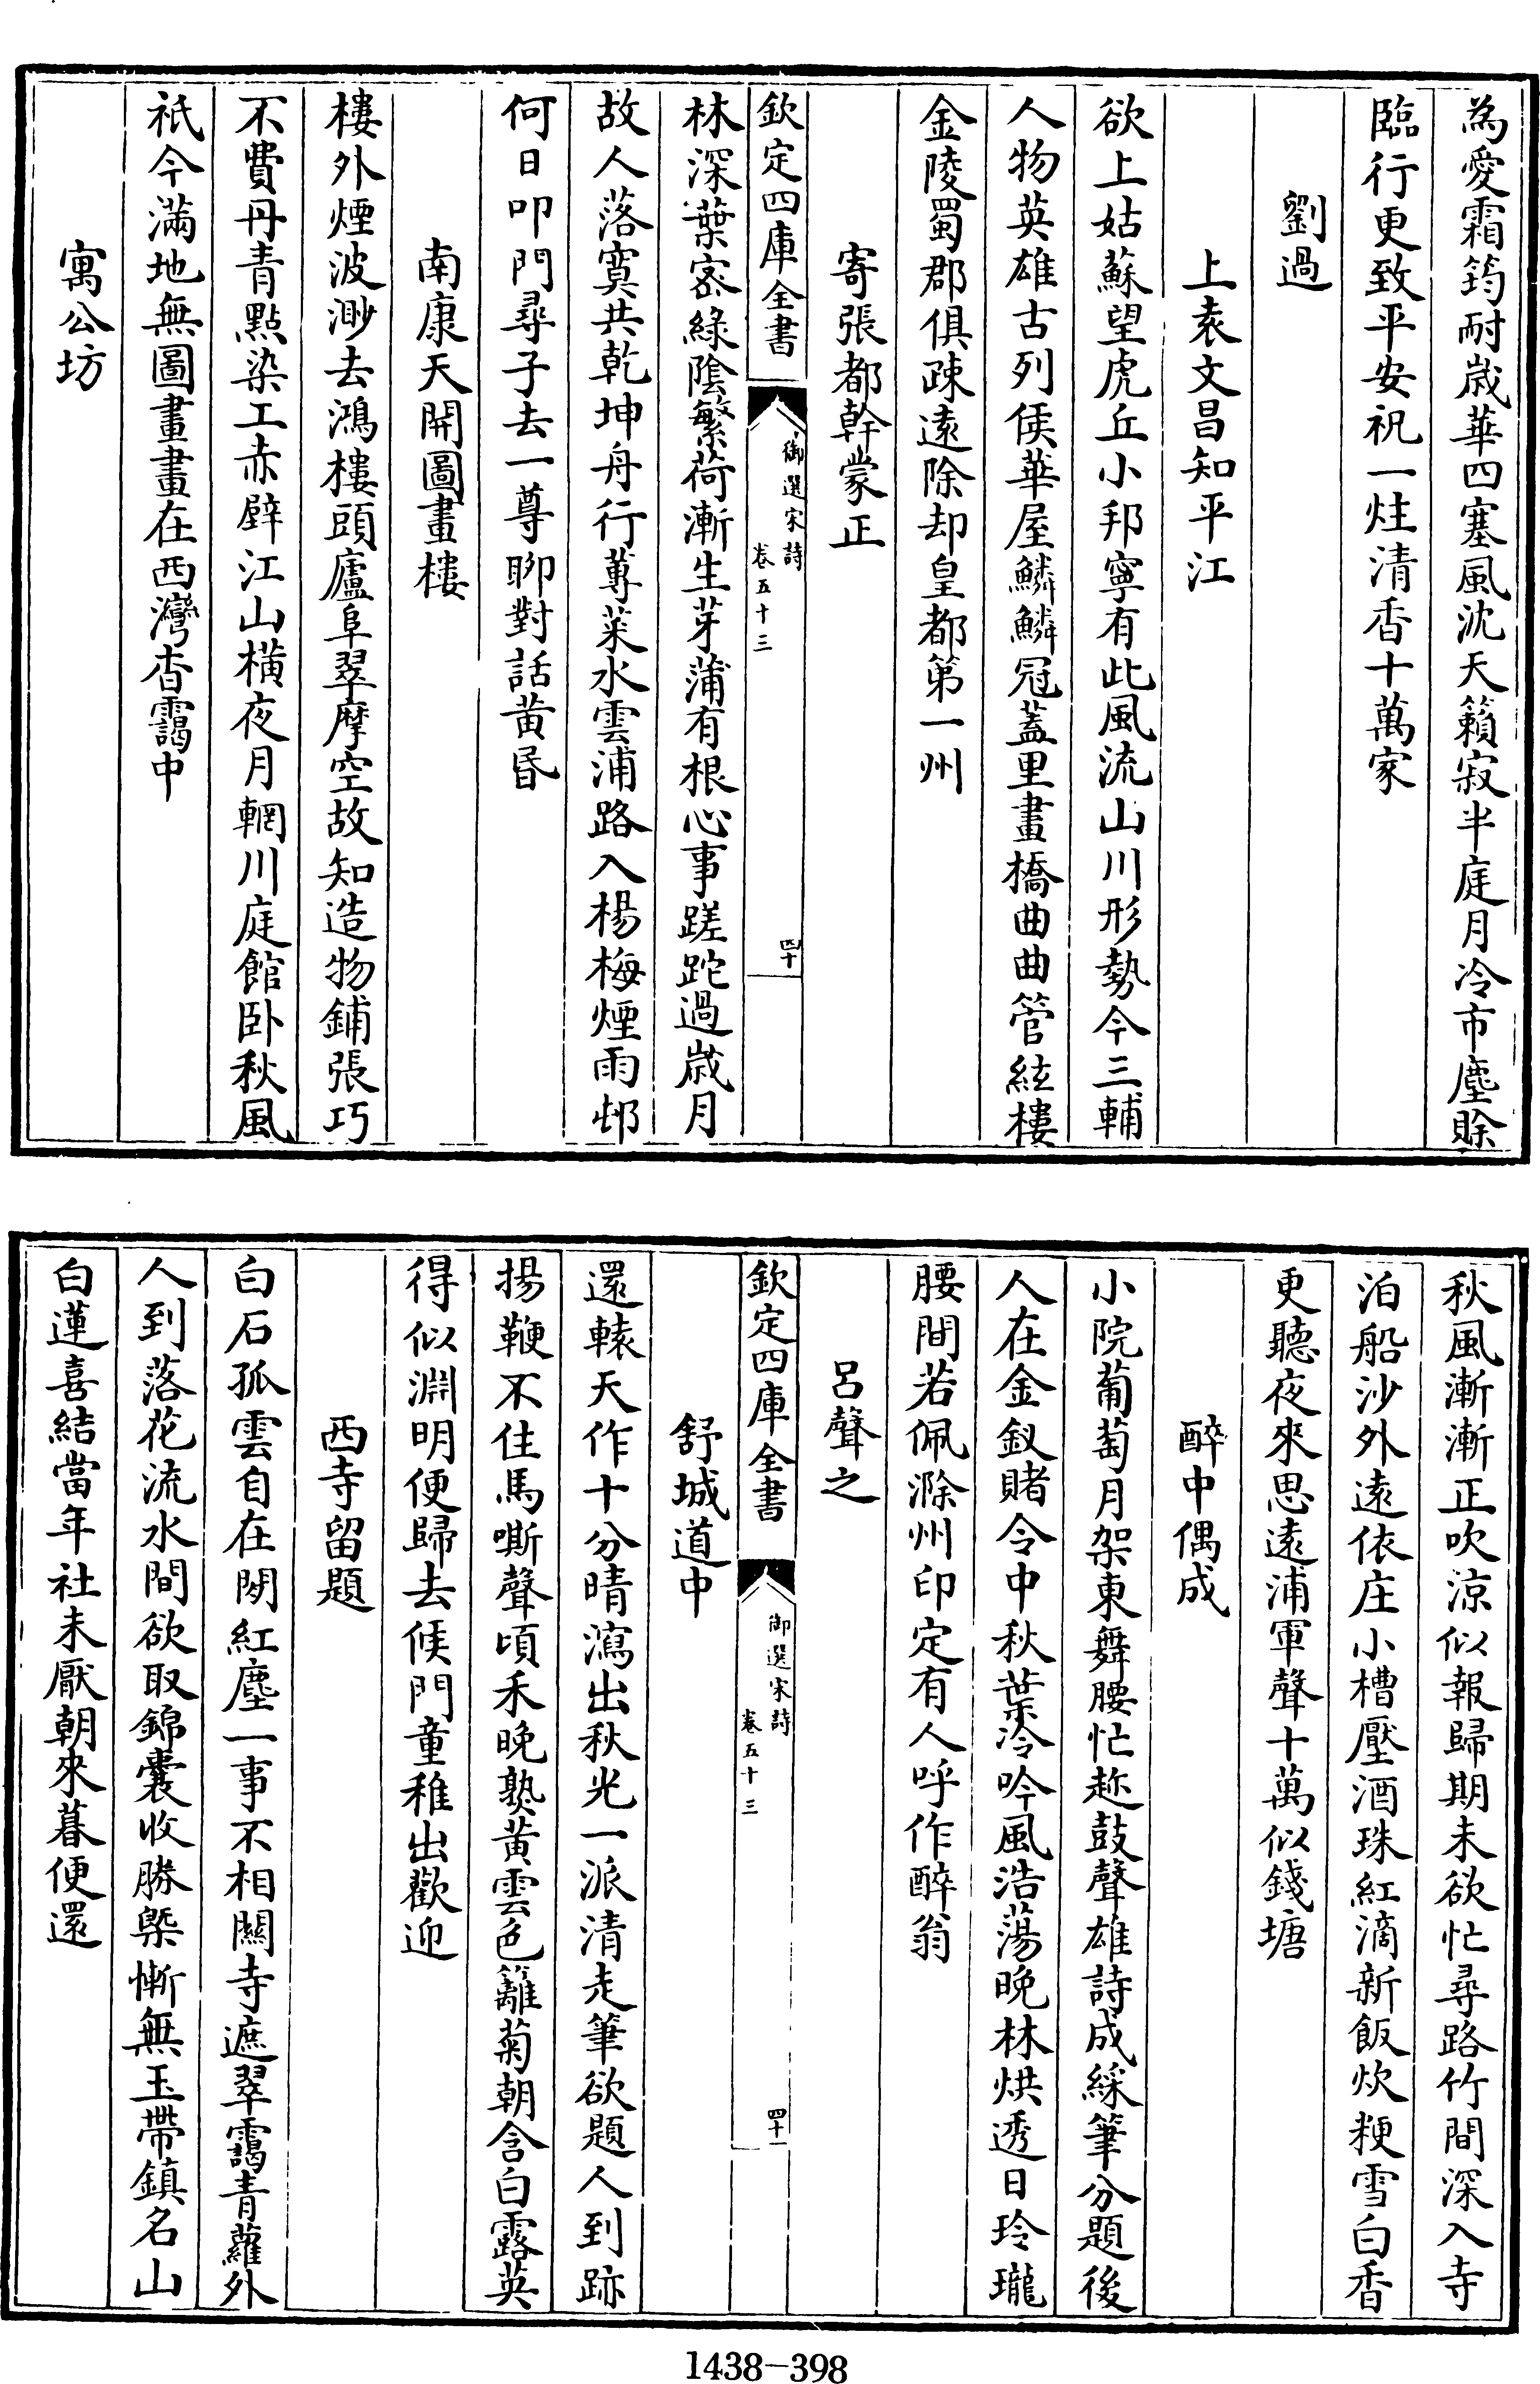 為愛霜筠耐歲華四塞風沈天籟寂半庭月冷市塵賖
臨行更致平安祝一炷清香十萬家
劉過
上袁文昌知平江
欲上姑蘇望虎丘小邦寧有此風流山川形勢今三輔
人物英雄古列侯華屋鱗鱗冠蓋里畫橋曲曲管絃樓
金陵蜀郡俱疎遠除却皇都第一州
寄張都幹蒙正
欽定四庫全書
御選宋詩
卷五十三
四十
林深葉宻綠陰繁荷漸生芽蒲有根心事蹉跎過歲月
故人落寞共乾坤舟行蓴菜水雲浦路入楊梅煙雨邨
何日叩門尋子去一尊聊對話黃昏
南康天開圖畫樓
樓外煙波渺去鴻樓頭廬阜翠摩空故知造物鋪張巧
不費丹青點染工赤壁江山橫夜月輞川庭館卧秋風
祇今滿地無圖畫畫在西灣杳靄中
寓公坊
秋風漸漸正吹涼似報歸期未欲忙尋路竹間深入寺
泊船沙外遠依庄小槽壓酒珠紅滴新飯炊粳雪白香
更聽夜來思遠浦軍聲十萬似錢塘
醉中偶成
小院葡萄月架東舞腰忙趂鼓聲雄詩成綵筆分題後
人在金釵賭令中秋葉冷吟風浩蕩晚林烘透日玲瓏
腰間若佩滁州印定有人呼作醉翁
呂聲之
欽定四庫全書
御選宋詩
卷五十三
四十一
舒城道中
還轅天作十分晴瀉出秋光一派清走筆欲題人到跡
揚鞭不住馬嘶聲頃禾晚熟黃雲色籬菊朝含白露英
得似淵明便歸去候門童稚出歡迎
西寺留題
白石孤雲自在閒紅塵一事不相關寺遮翠靄青蘿外
人到落花流水間欲取錦囊收勝槩慚無玉帶鎮名山
白蓮喜結當年社未厭朝來暮便還
1438-398